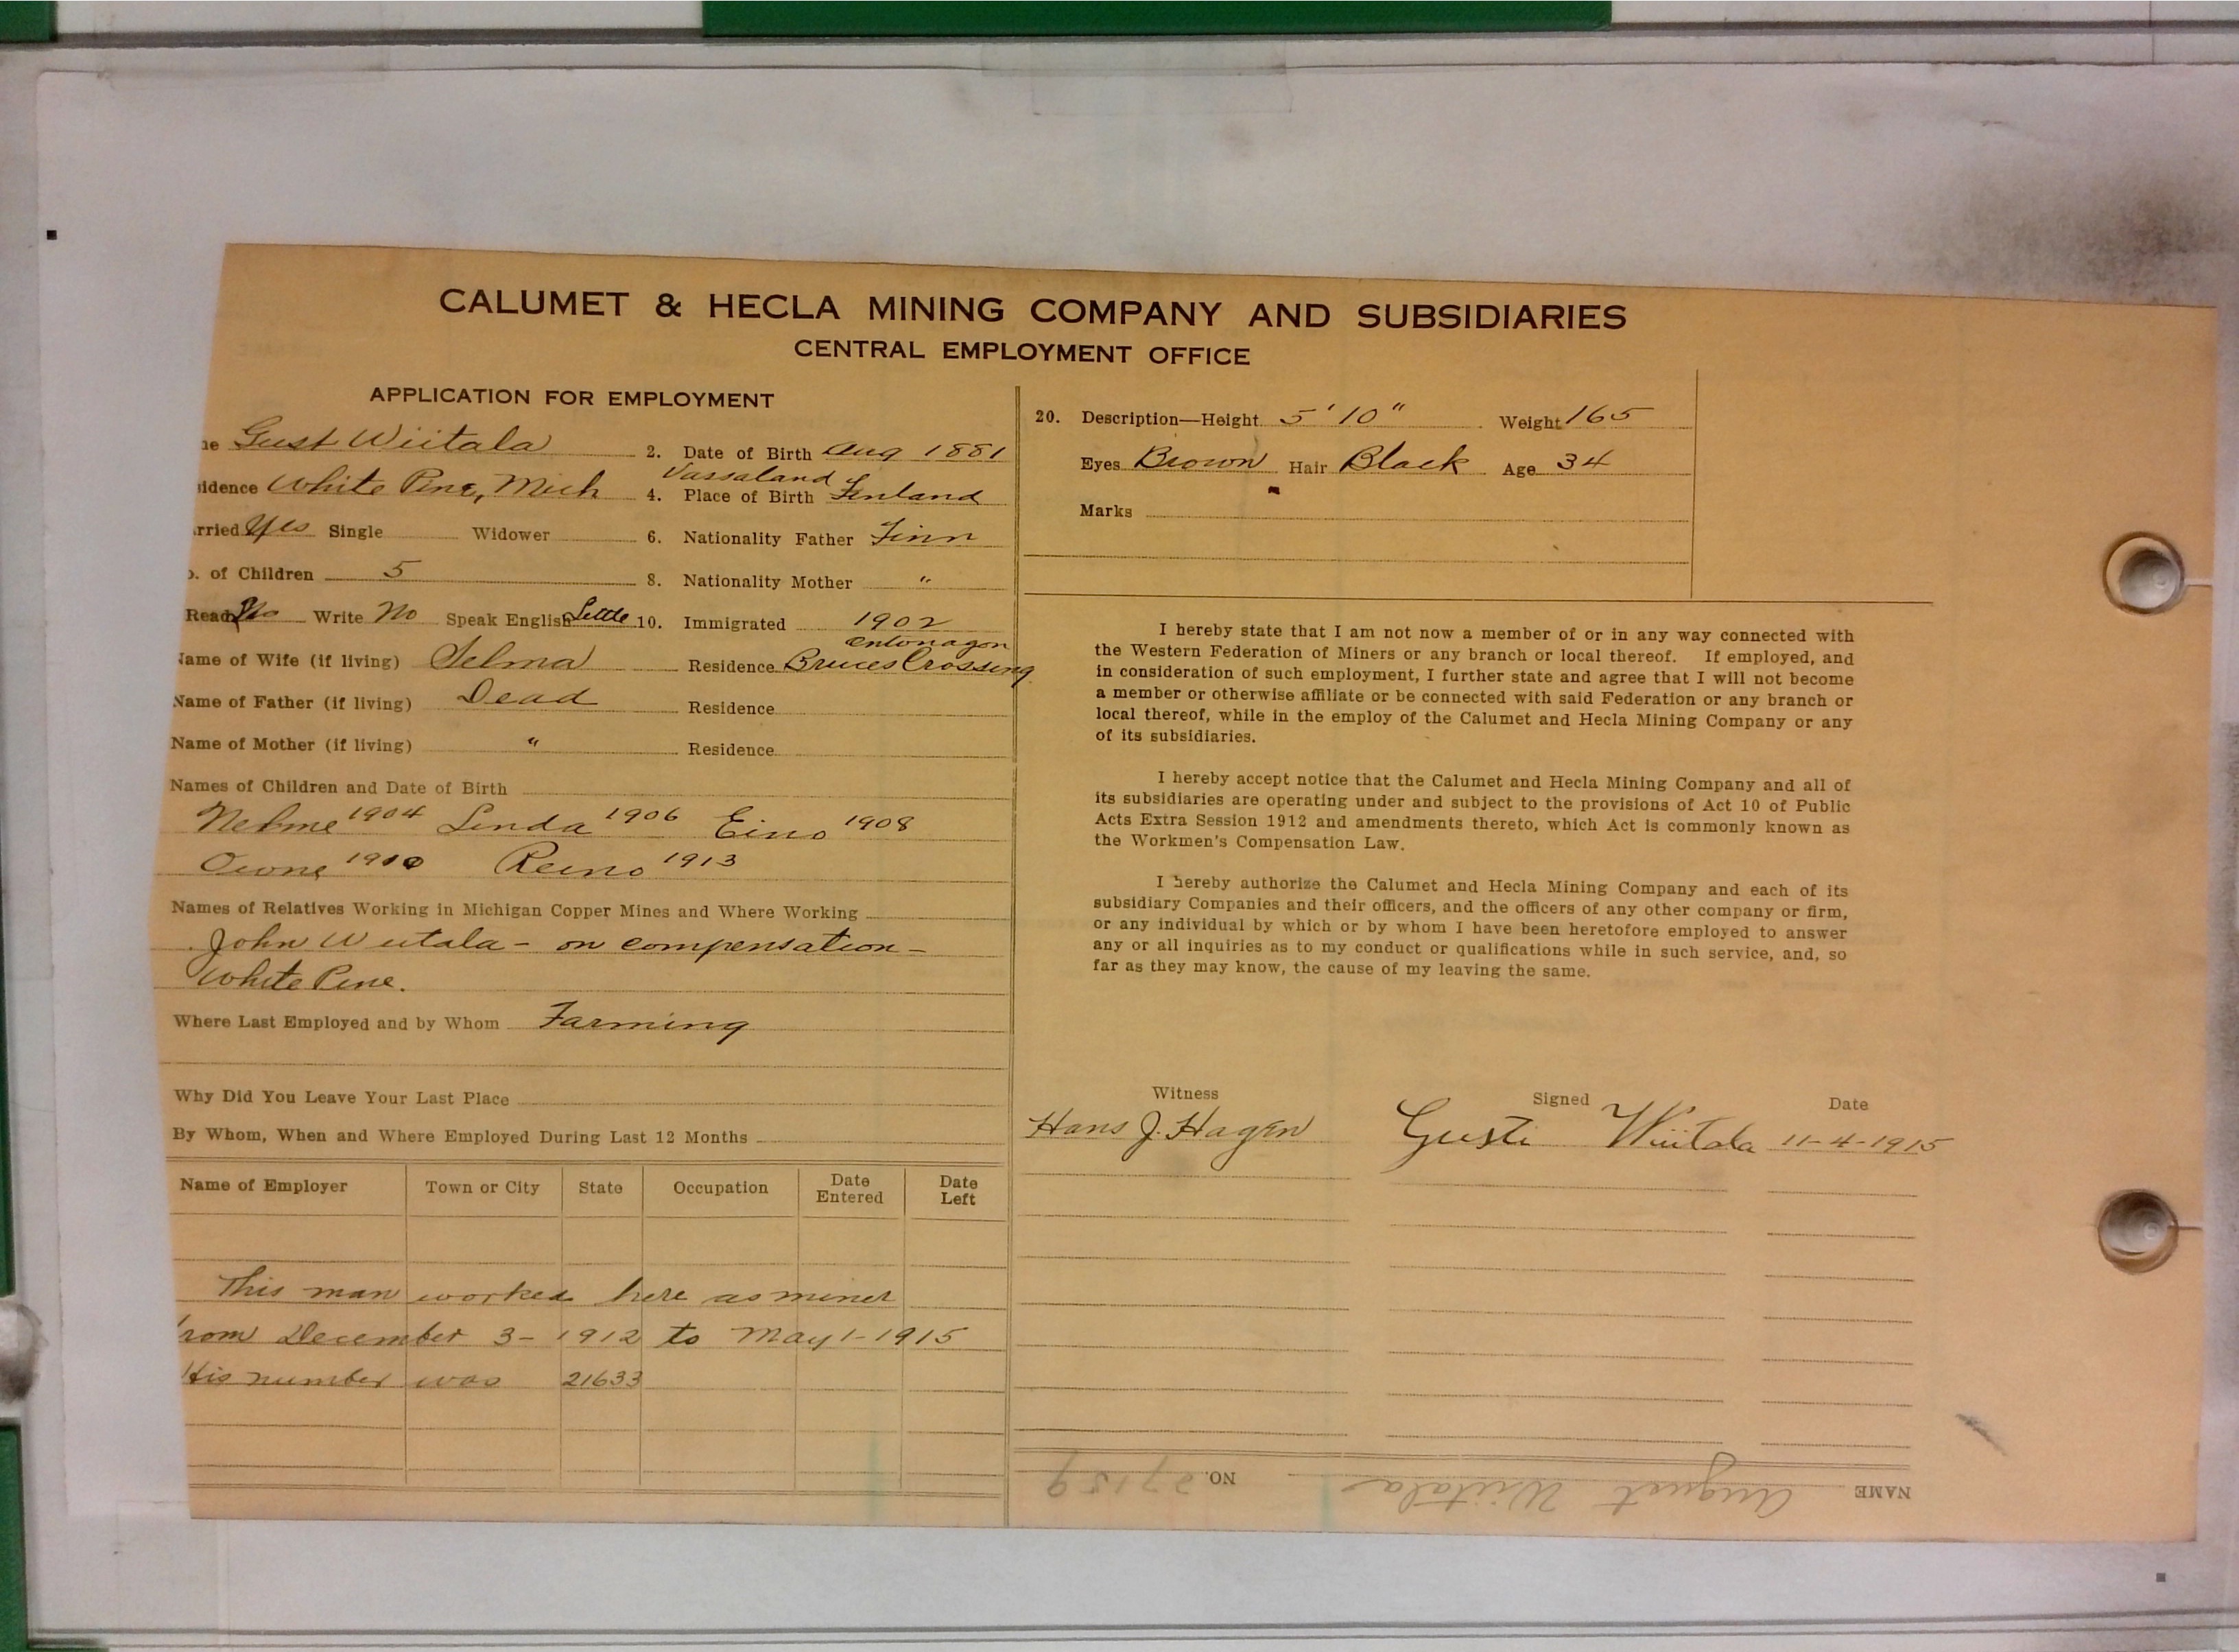 CALUMET & HECLA MINING COMPANY AND SUBSIDIARIES
CENTRAL EMPLOYMENT OFFICE
APPLICATION FOR EMPLOYMENT
me Gust Wiitala 2. Date of Birth Aug 1881
sidence White Pine, Mich 4. Place of Birth Vassaland Finland
rried Yes Single Widower 6. Nationality Father Finn
o. of Children 5 8. Nationality Mother "
Read No Write No Speak English Little 10. Immigrated 1902
Name of Wife (if living) Selma Residence Bruces Crossing entonagon
Name of Father (if living) Dead Residence
Name of Mother (if living) " Residence
Names of Children and Date of Birth
1904 Linda 1906 Eino 1908
1910 Reino 1913
Names of Relatives Working in Michigan Copper Mines and Where Working
John Wiitala - on compensation -
White Pine.
Where Last Employed and by Whom Farming
Why Did You Leave Your Last Place
By Whom, When and Where Employed During Last 12 Months
Name of Employer Town or City State Occupation Date Entered Date Left
This man worked here as miner
from December 3-1912 to May 1-1915
His number was 21633
20. Description—Height 5' 10" Weight 165
Eyes Brown Hair Black Age 34
Marks
I hereby state that I am not now a member of or in any way connected with
the Western Federation of Miners or any branch or local thereof. If employed, and
in consideration of such employment, I further state and agree that I will not become
a member or otherwise affiliate or be connected with said Federation or any branch or
local thereof, while in the employ of the Calumet and Hecla Mining Company or any
of its subsidiaries.
I hereby accept notice that the Calumet and Hecla Mining Company and all of
its subsidiaries are operating under and subject to the provisions of Act 10 of Public
Acts Extra Session 1912 and amendments thereto, which Act is commonly known as
the Workmen's Compensation Law.
I hereby authorize the Calumet and Hecla Mining Company and each of its
subsidiary Companies and their officers, and the officers of any other company or firm,
or any individual by which or by whom I have been heretofore employed to answer
any or all inquiries as to my conduct or qualifications while in such service, and, so
far as they may know, the cause of my leaving the same.
Witness Signed Date
Hans J. Hagen Gusti Wiitala 11-4-1915
NAME August Wiitala NO. 27159